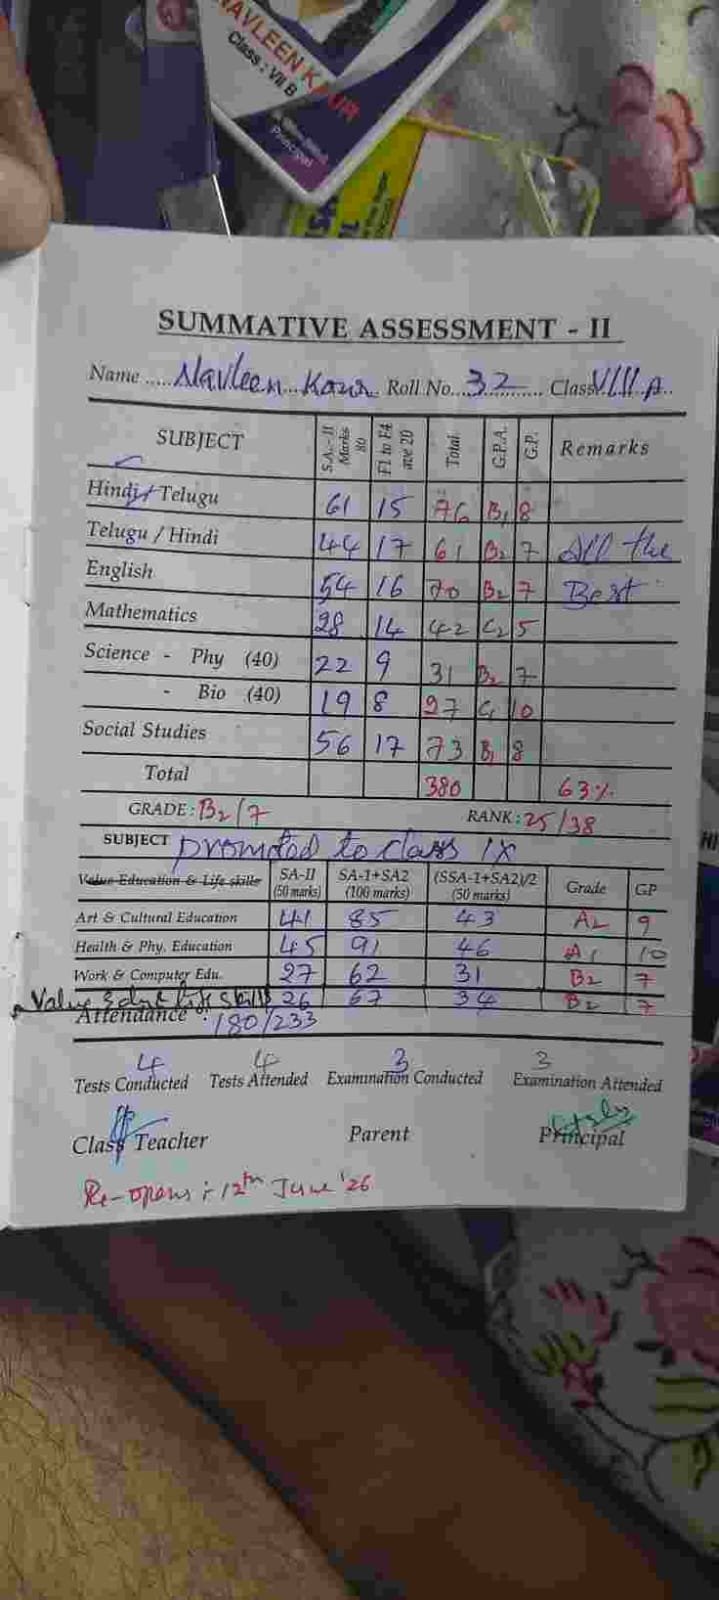 NAVLEEN KAUR
Class : VII B
Principal
SUMMATIVE ASSESSMENT - II
Name ..... Navleen Kaur Roll No. 32 Class VIII A
SUBJECT S.A.- II Marks 80 F1 to F4 ave 20 Total G.P.A. G.P. Remarks
Hindi / Telugu 61 15 76 B1 8
Telugu / Hindi 44 17 61 B2 7 All the
English 54 16 70 B2 7 Best
Mathematics 28 14 42 C2 5
Science - Phy (40) 22 9 31 B2 7
- Bio (40) 19 8 27 C1 10
Social Studies 56 17 73 B1 8
Total 380 63%
GRADE: B2/7 RANK: 25/38
SUBJECT promoted to class IX
Value Education & Life skills SA-II (50 marks) SA-1+SA2 (100 marks) (SSA-1+SA2)/2 (50 marks) Grade GP
Art & Cultural Education 41 85 43 A2 9
Health & Phy. Education 45 91 46 A1 10
Work & Computer Edu. 27 62 31 B2 7
Value Edu & life Skills 26 67 34 B2 7
Attendance : 180/233
4 4 3 3
Tests Conducted Tests Attended Examination Conducted Examination Attended
Class Teacher Parent Principal
Re-opens : 12th June '26